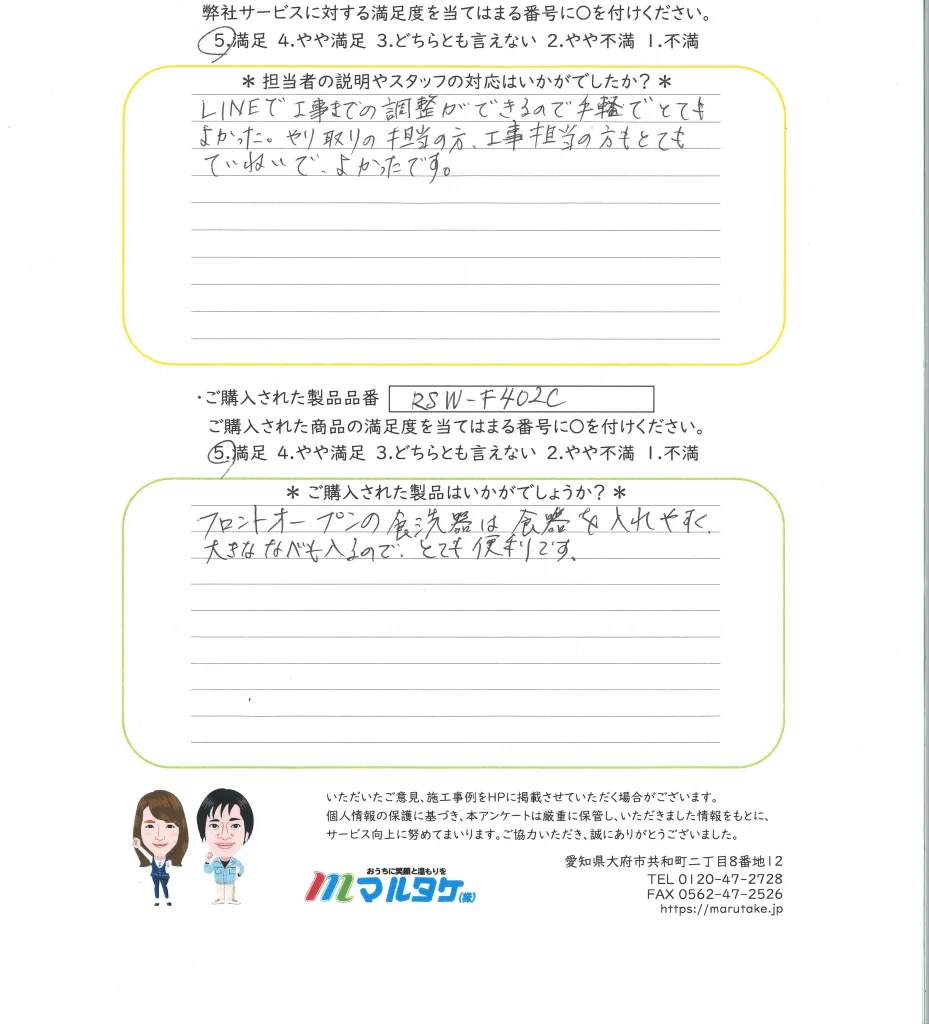 弊社サービスに対する満足度を当てはまる番号に〇を付けください。
5.満足 4.やや満足 3.どちらとも言えない 2.やや不満 1.不満
＊ 担当者の説明やスタッフの対応はいかがでしたか？ ＊
LINEで工事までの調整ができるので手軽でとても
よかった。やり取りの担当の方、工事担当の方もとても
ていねいで、よかったです。
・ご購入された製品品番 RSW-F402C
ご購入された商品の満足度を当てはまる番号に〇を付けください。
5.満足 4.やや満足 3.どちらとも言えない 2.やや不満 1.不満
＊ ご購入された製品はいかがでしょうか？ ＊
フロントオープンの食洗器は食器を入れやすく、
大きななべも入るので、とても便利です。
いただいたご意見、施工事例をHPに掲載させていただく場合がございます。
個人情報の保護に基づき、本アンケートは厳重に保管し、いただきました情報をもとに、
サービス向上に努めてまいります。ご協力いただき、誠にありがとうございました。
おうちに笑顔と温もりを
m マルタケ(株)
愛知県大府市共和町二丁目8番地12
TEL 0120-47-2728
FAX 0562-47-2526
https://marutake.jp